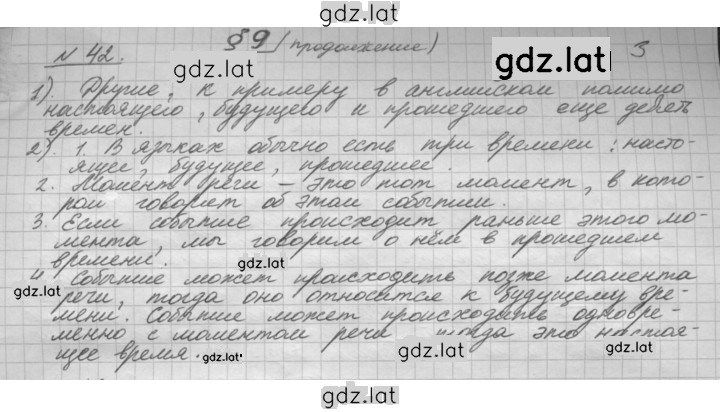 gdz.lat
№ 42. § 9 (продолжение) 3
gdz.lat gdz.lat
1). Другие, к примеру в английском помимо
настоящего, будущего и прошедшего еще девять
времен.
2) 1. В языках обычно есть три времени: насто-
ящее, будущее, прошедшее.
2. Момент речи – это тот момент, в кото-
ром говорит об этом событии.
3. Если событие происходит раньше этого мо-
мента, мы говорим о нём в прошедшем
времени.
4 Событие может происходить позже момента
речи, тогда оно относится к будущему вре-
gdz.lat gdz.lat
мени. Событие может происходить одновре-
менно с моментом речи это настоя-
gdz.lat
щее время.
gdz.lat gdz.lat
gdz.lat